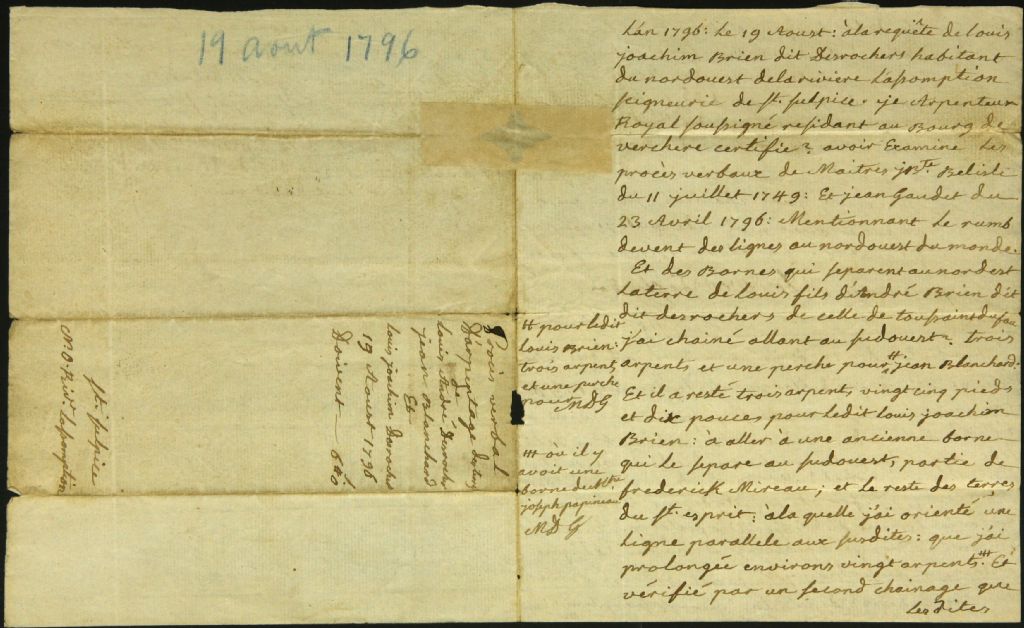 19 aout 1796
L'an 1796: Le 19 Aoust: à la requête de Louis
joachim Brien dit Desrochers habitant
du nordouest de la riviere Lassomption
seigneurie de St. Sulpice. je Arpenteur
Royal soussigné residant au Bourg de
verchere certifie avoir Examiné Les
procès verbaux de Maitres jBte. Belisle
du 11 juillet 1749: Et jean Gaudet du
23 Avril 1796: Mentionnant Le rumb
devent des lignes au nordouest du monde.
Et des Bornes qui separent au nord est
La terre de Louis fils d'André Brien dit
dit desrochers de celle de toussaint dufau
j'ai chainé allant au sudouest trois
arpents et une perche pour # jean Blanchard.
Et il a resté trois arpents vingt cinq pieds
et dix pouces pour ledit louis joachim
Brien: à aller à une ancienne borne
qui le separe au sudouest, partie de
frederick Mireau; et le reste des terres
du St. esprit: à la quelle j'ai orienté une
Ligne parallele aux susdites: que j'ai
prolongée environs vingt arpents. ### Et
vérifié par un second chainage que
Les dites
# pour ledit
Louis Brien:
trois arpents
et une perche
pour MDG
### où il y
avoit une
borne de Mtre
joseph papineau
MDG
Procès verbal
D'arpentage de
Louis André Desrochers
jean Blanchard
Et
louis joachim Desrochers
19 Aoust 1796
Doivent
St. Sulpice
Lassomption